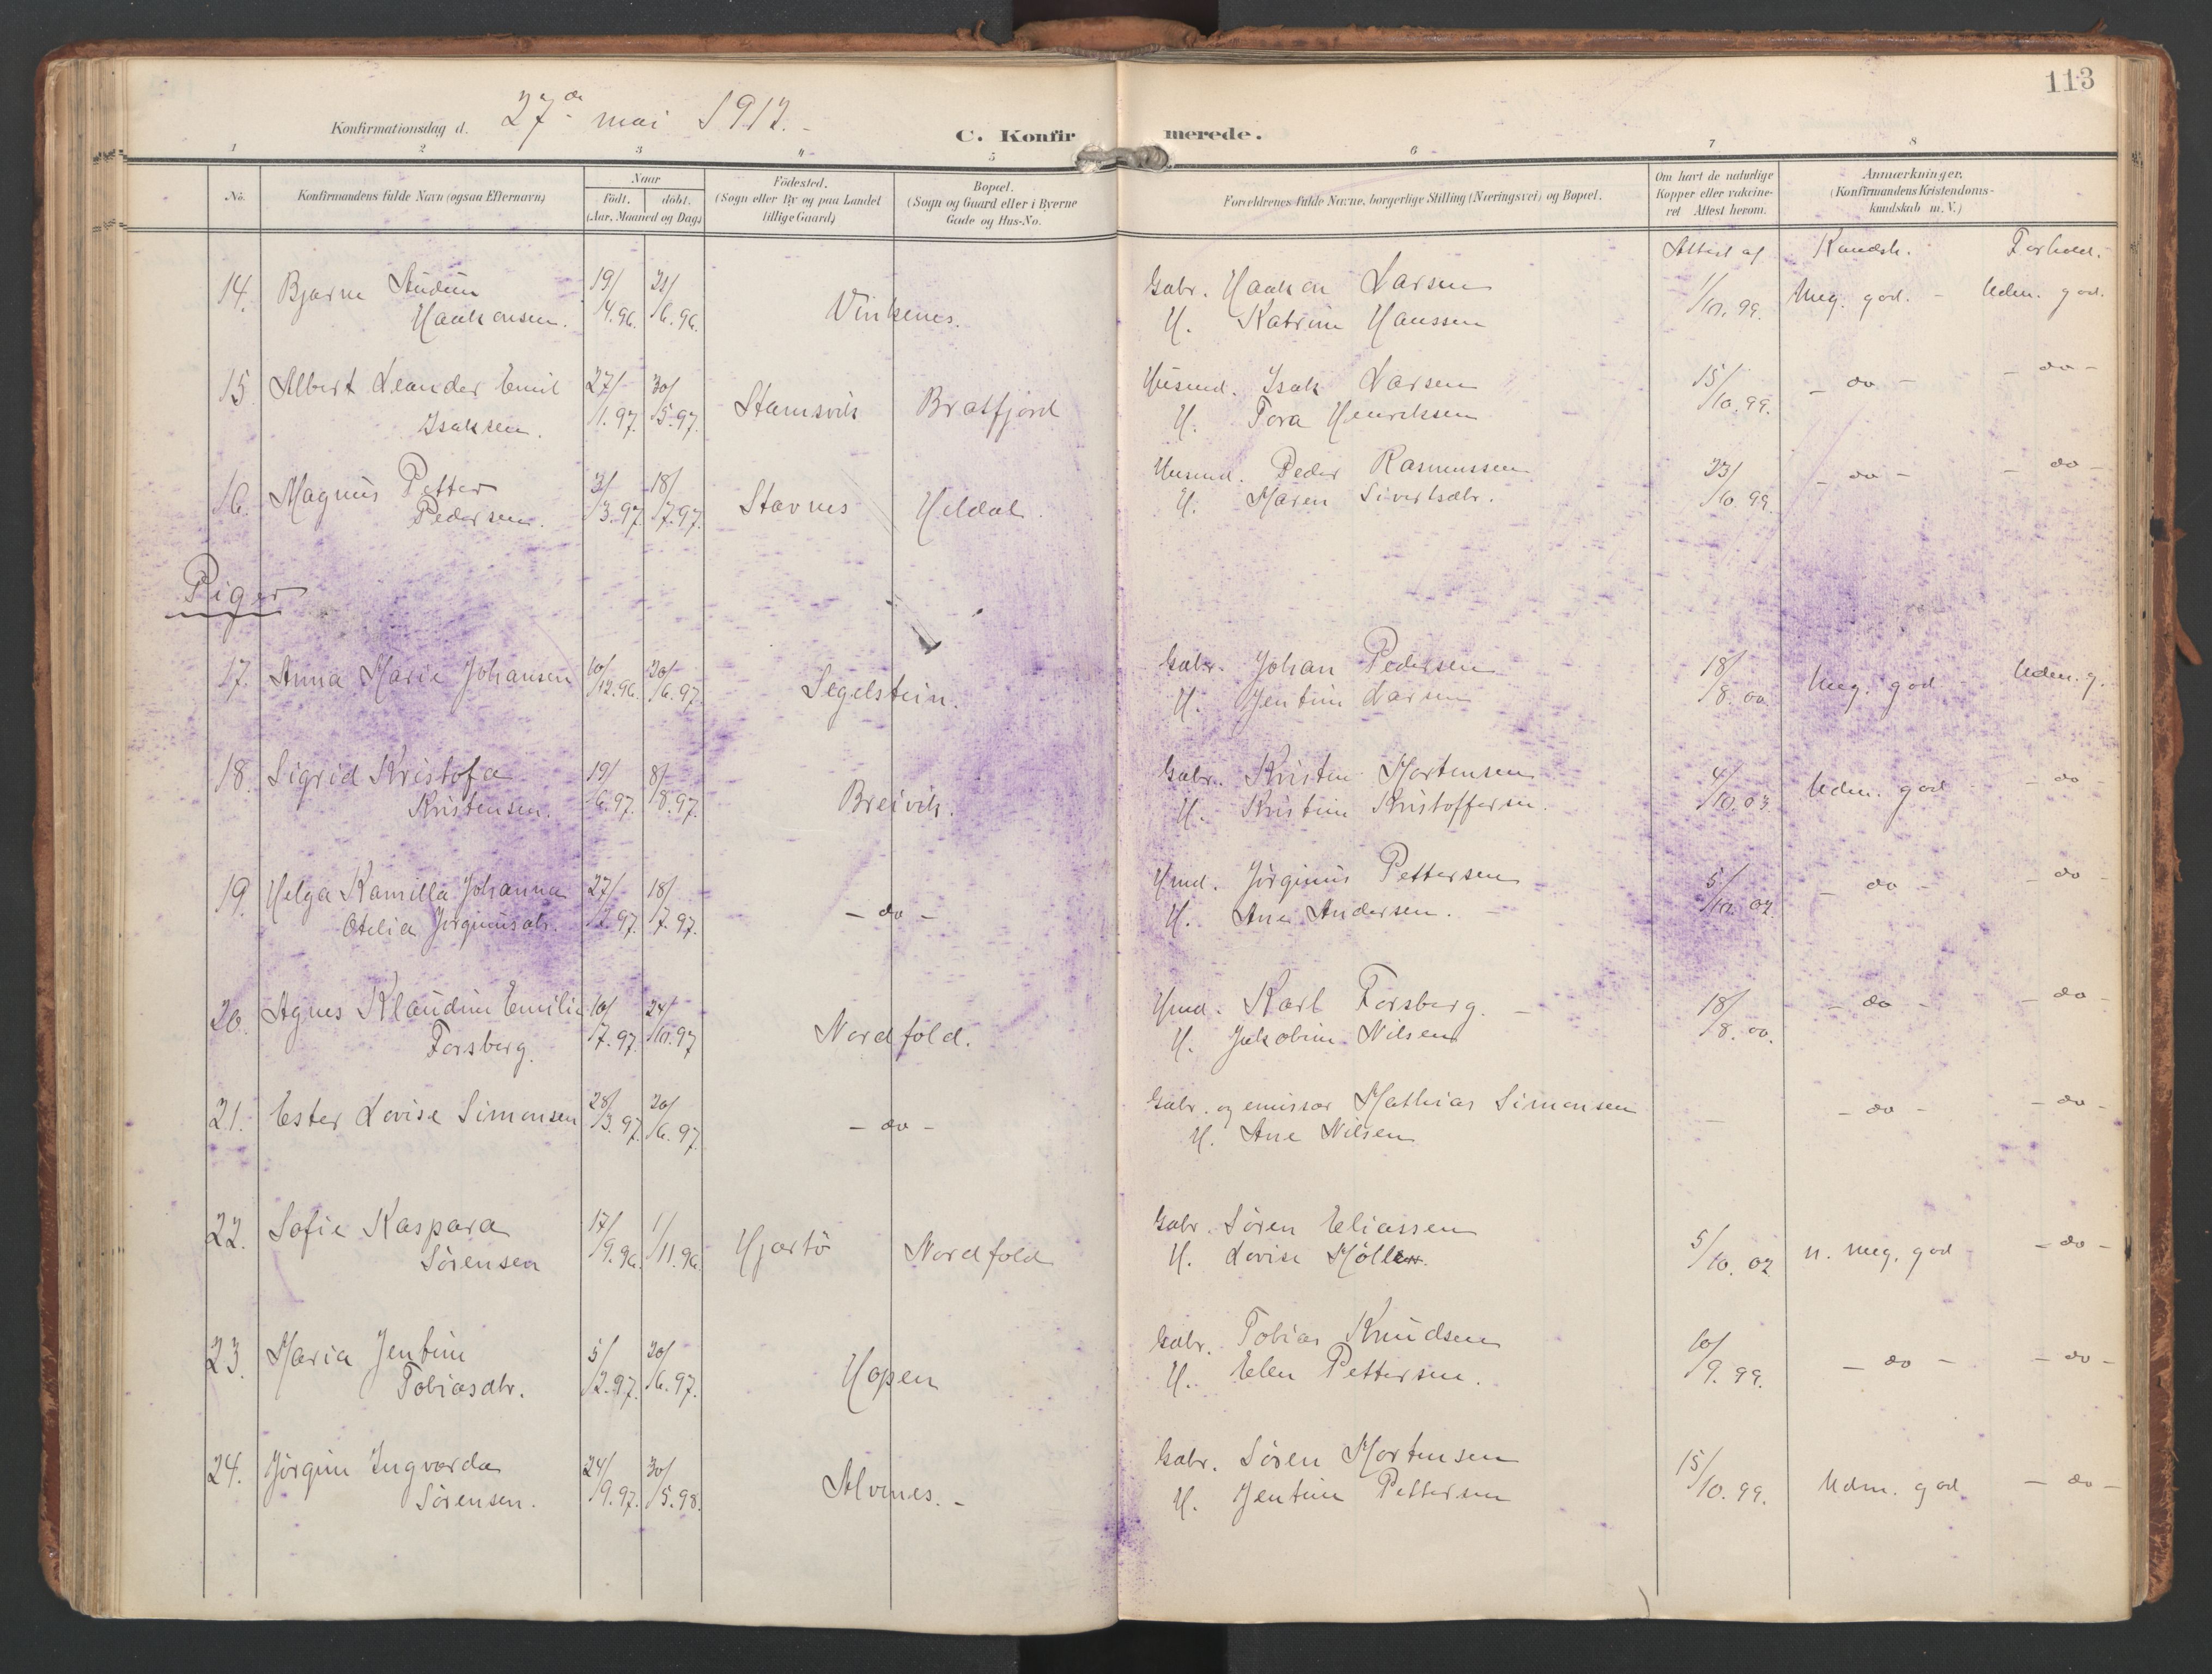 113
Konfirmationsdag d. 27de mai 1912.
C. Konfirmerede.
1 2 3 4 5 6 7 8
No. Konfirmandens fulde Navn (ogsaa Efternavn) Naar Födt. döbt. (Aar, Maaned og Dag) Födested. (Sogn eller By og paa Landet tillige Gaard) Bopæl. (Sogn og Gaard eller i Byerne Gade og Hus-No. Forældrenes fulde Navne, borgerlige Stilling (Næringsvei) og Bopæl. Om havt de naturlige Kopper eller vakcineret Attest herom. Anmærkninger. (Konfirmandens Kristendomskundskab m. V.)
Attest af Kundsk. Forhold.
14. Bjarne Audun 19/4.96. 21/6.96. Vinkenes. Gabr. Haakon Larsen 1/10.99. Meg. god. - Udm. god.
Haakonsen. H. Katrine Hanssen
15. Albert Leander Emil 27/1.97. 30/5.97. Stamsvik Bratfjord Husmd. Isak Larsen 15/10.99. - do - - do -
Isaksen. H. Tora Henriksen
16. Magnus Petter 3/3.97. 18/7.97. Stavnes Heldal Husmd. Peder Rasmussen 23/10.99. - do - - do -
Pedersen. H. Maren Sivertsdtr.
Piger
17. Anna Marie Johansen 10/12.96. 20/6.97. Segelstein. Gabr. Johan Pedersen 18/8.00. Meg. god Udm. g.
H. Jentine Larsen
18. Sigrid Kristofa 19/6.97. 8/8.97. Breivik. Gabr. Kristen Mortensen 4/10.03 Udm. god - do -
Kristensen. H. Kristine Kristoffersen.
19. Helga Kamilla Johanna 27/2.97. 18/7.97. - do - Hmd. Jörginus Pettersen 5/10.02 - do - - do -
Otelia Jörginusdtr. H. Ane Andersen.
20. Agnes Klaudine Emilie 10/7.97. 24/10.97 Nordfold. Hmd. Karl Forsberg. - 18/8.00. - do - - do -
Forsberg. H. Jakobine Nilsen
21. Ester Lovise Simonsen 28/3.97. 20/6.97. - do - Gabr. og emissær Mathias Simonsen - - do - - do -
H. Ane Nilsen
22. Sofie Kaspara 17/9.96. 1/11.96. Hjartö Nordfold Gabr. Sören Eliassen 5/10.02 n. meg. god - do -
Sörensen H. Lovise Möller.
23. Maria Jentine 5/2.97. 20/6.97. Hopen Gabr. Tobias Knudsen 10/9.99. - do - - do -
Tobiasdtr. H. Elen Pettersen.
24. Jörgine Ingvarda 24/9.97. 30/5.98. Alvenes. - Gabr. Sören Mortensen 15/10.99. Udm. god - do -
Sörensen. H. Jentine Pettersen